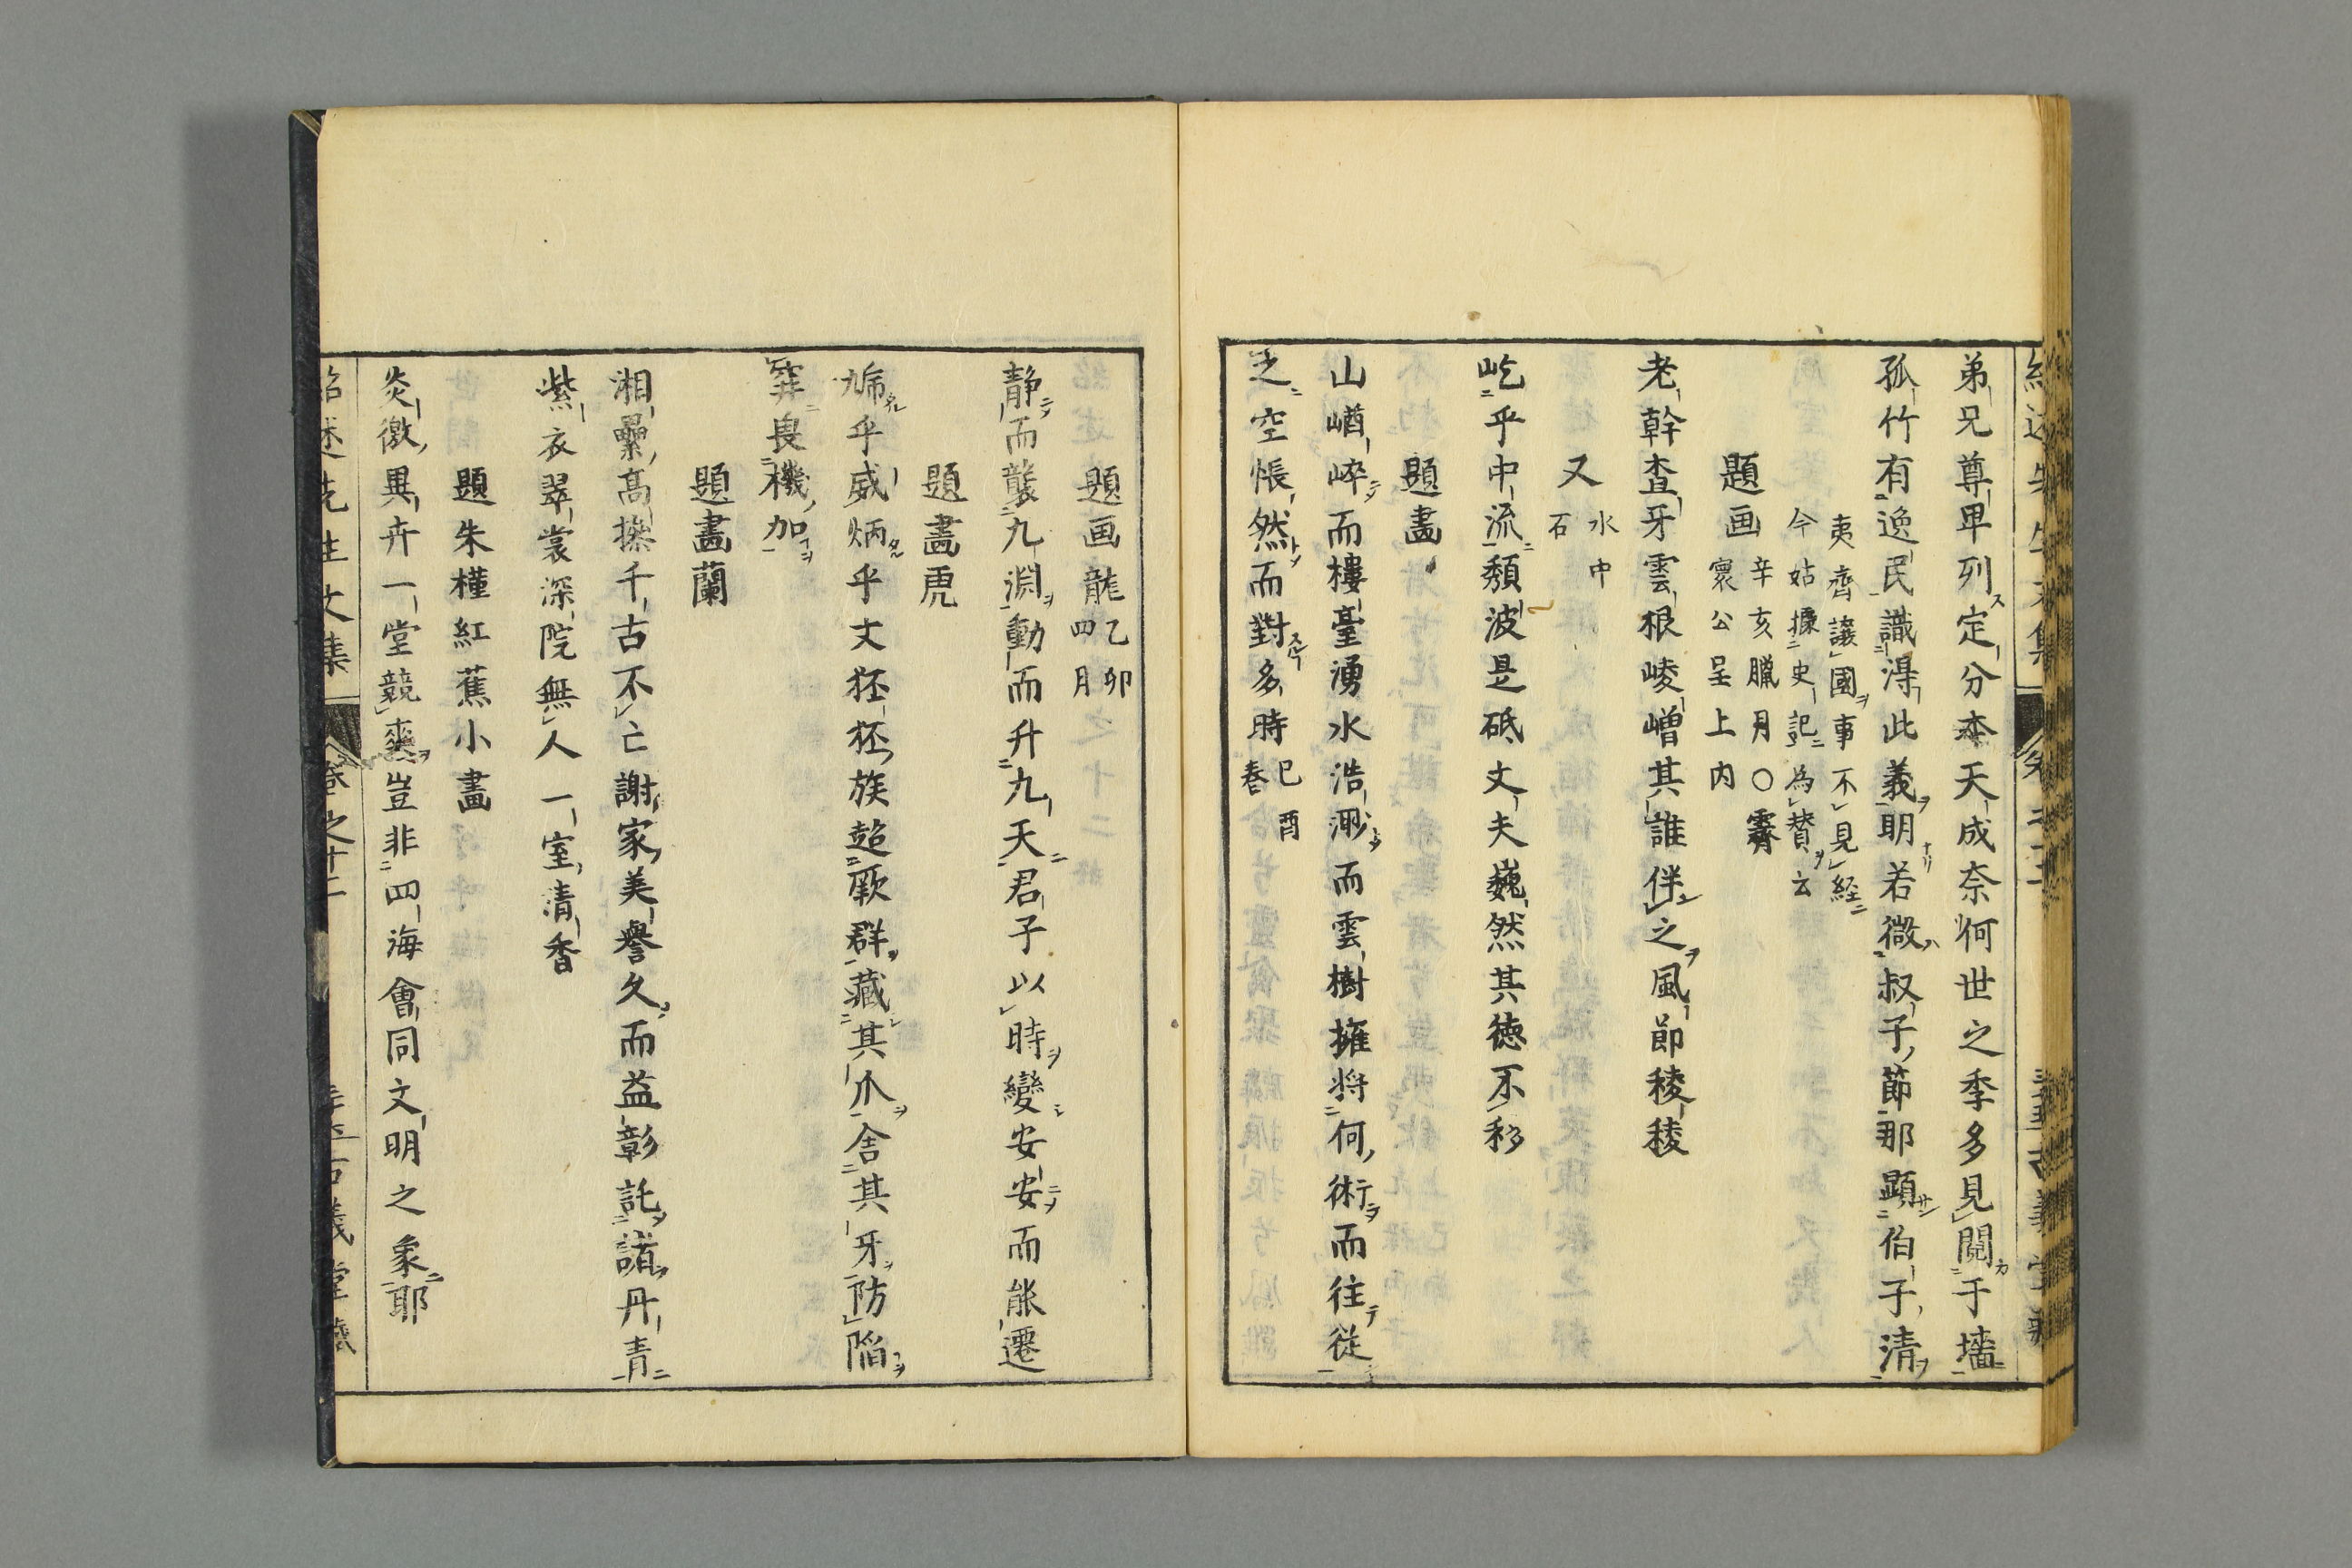 弟兄尊卑列定分夲天成奈何世之季多見鬩于墻
孤竹有逸民識淂此義明若微叔子節那顕伯子清
夷齊譲國事不見経
今姑據史記為賛云
題画
辛亥臘月〇霽
寰公呈上内
老幹査牙雲根崚嶒其誰伴之風節稜稜
又
水中
石
屹乎中流頽波是砥丈夫巍然其徳不移
題畵
山崷崪而樓臺湧水浩渺而雲樹擁将何術而往従
之空悵然而對多時
巳酉
春
題画龍
乙卯
四月
静而襲九淵動而升九天君子以時變安安而能遷
題畵虎
乎威炳乎文狉狉族超厥群藏其爪舎其牙防陥
穽畏機加
題畵蘭
湘纍高操千古不亡謝家美譽久而益彰託諸丹青
紫衣翠裳深院無人一室清香
題朱槿紅蕉小畵
炎徼異卉一堂競爽豈非四海會同文明之象耶
紹述先生文集
卷之十二
古義堂藏